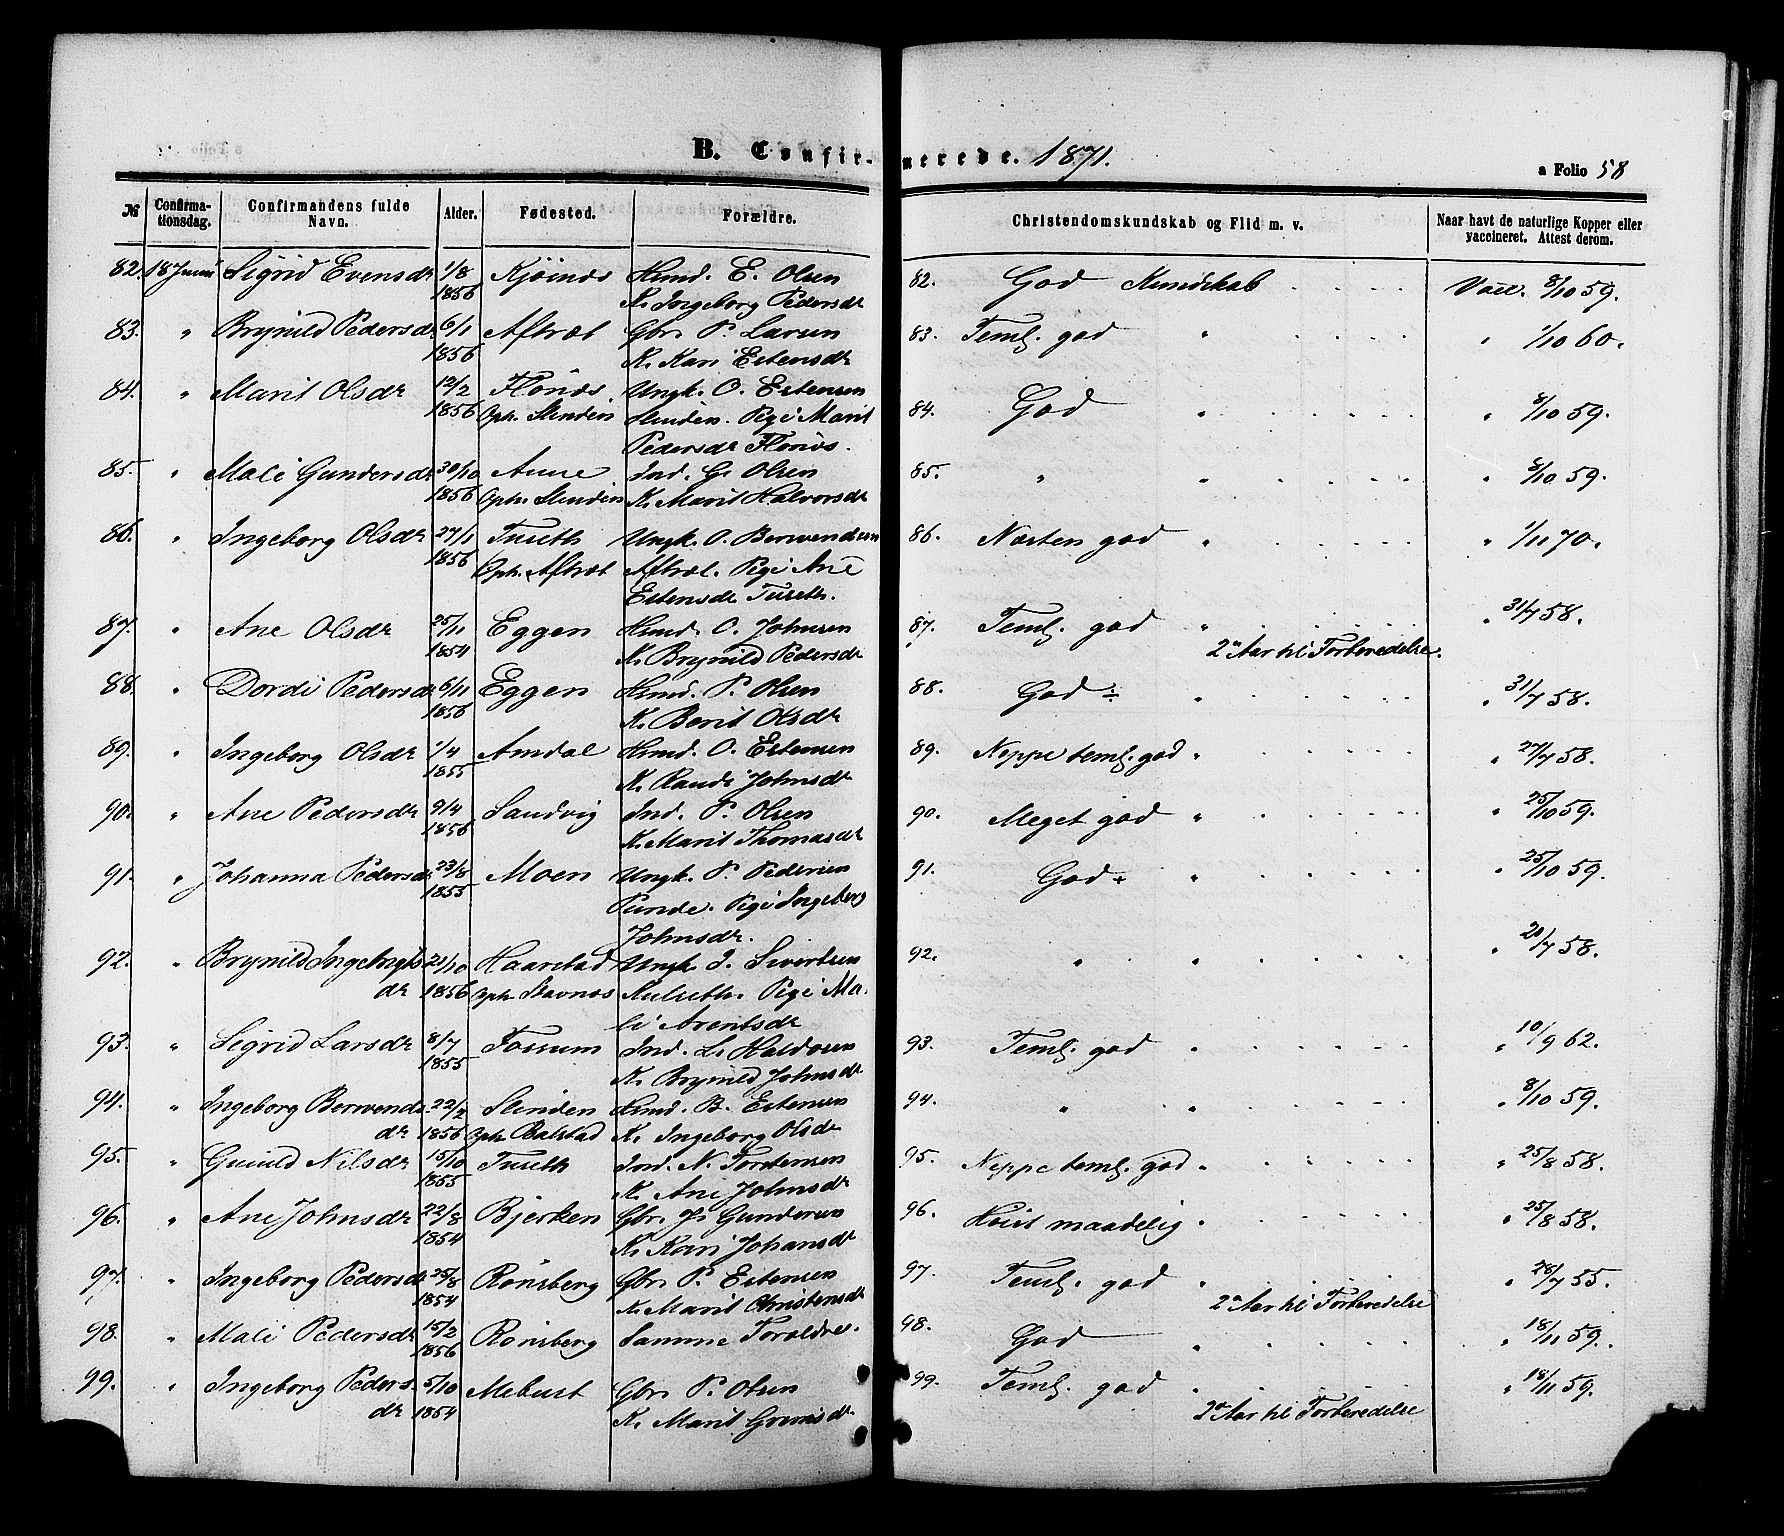 B. Confir-
merede. 1871.
a Folio 58
№ Confirma-tionsdag. Confirmandens fulde Navn. Alder. Fødested. Forældre. Christendomskundskab og Flid m. v. Naar havt de naturlige Kopper eller vaccineret. Attest derom.
82. 18 Juni Sigrid Evensdr 1/8 Kjøinds Huusd. E. Olsen 82. God Kundskab Vacc. 8/10 59.
1856 K. Ingeborg Pedersdr
83. " Brynild Pedersdr. 6/11 Aftret Gbr. P. Larsen 83. Teml. god " " 1/10 60.
1856 K. Kari Estensdr
84. " Marit Olsdr 12/2 Flønæs Ungk. O. Estensen 84. God " " 8/10 59.
1856 Oph. Slinden Slinden. Pige Marit
Pedersdr Flønæs.
85. " Mali Gundersdr 30/10 Aune Ind. G. Olsen 85. " " " 8/10 59.
1856 Oph. Slinden K. Marit Halvorsdr
86. " Ingeborg Olsdr 27/1 Tuseth Ungk. O. Berwendsen 86. Næsten god " " 1/11 70.
1856 Oph. Aftret Aftret. Pige Ane
Estensdr Tuseth.
87. " Ane Olsdr 25/11 Eggen Huusd. O. Johnsen 87. Teml. god " " 31/7 58.
1854 K. Brynild Pedersdr 2 Aar til Forberedelse.
88. " Dordi Pedersdr 6/11 Eggen Huusd. P. Olsen 88. God ÷ " " 31/7 58.
1856 K. Berit Olsdr
89. " Ingeborg Olsdr 1/4 Amdal Huusd. O. Estensen 89. Neppe teml. god " " 27/7 58.
1855 K. Randi Johnsdr
90. " Ane Pedersdr 9/4 Sandvig Ind. P. Olsen 90. Meget god " " 25/10 59.
1856 K. Marit Thomasdr
91. " Johanna Pedersdr 23/8 Moen Ungk. P. Pedersen 91. God + " " 25/10 59.
1855 Punde. Pige Ingeborg
Johnsdr.
92. " Brynild Ingebrigts 21/10 Haarstad Ungk. I. Sivertsen 92. " " " 20/7 58.
dr 1856 Oph. Stavnes Kulseth. Pige Ma-
li Arentsdr
93. " Sigrid Larsdr 8/7 Fossum Ind. L. Haldosen 93. Teml. god " " 10/9 62.
1855 K. Brynild Johnsdr
94. " Ingeborg Berwends 22/2 Slinden Huusd. B. Estensen 94. " " " 8/10 59.
dr 1856 Oph. Balstad K. Ingeborg Olsdr
95. " Gunild Nilsdr 15/10 Tuseth Ind. N. Torstensen 95. Neppe teml. god " " 25/8 58.
1855 K. Ane Johnsdr
96. " Ane Johnsdr 22/8 Bjerken Gbr. J. Gundersen 96. Høist maadelig " " 25/8 58.
1854 K. Kari Johansdr
97. " Ingeborg Pedersdr 25/8 Rønsberg Gbr. P. Estensen 97. Teml. god " " 28/7 55.
1854 K. Marit Christensdr 2 Aar til Forberedelse
98. " Mali Pedersdr 15/2 Rønsberg Samme Forældre. 98. God " " 18/11 59.
1856
99. " Ingeborg Peders 5/10 Mebust Gbr. P. Olsen 99. Teml. god " " 18/11 59.
dr 1854 K. Marit Grimsdr. 2 Aar til Forberedelse